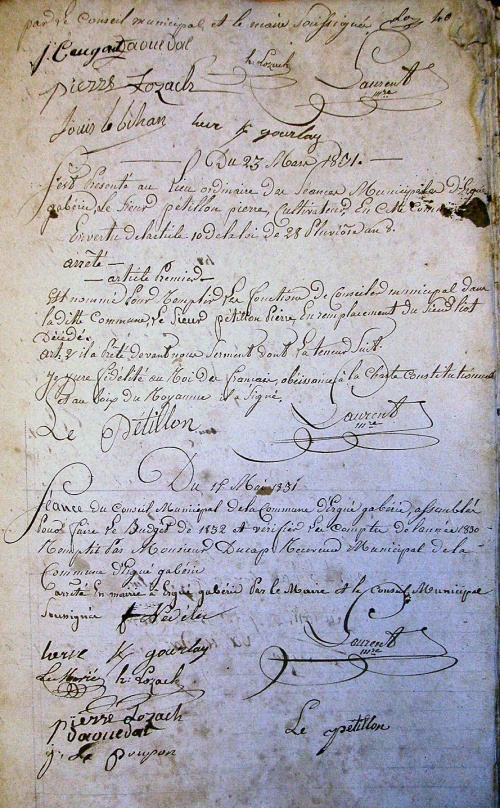 par le Conseil municipal et le maire soussigné
J. Ceugard Daouedal
h: Lozach
pierre Lozach
Laurent
mre
Louis le bihan herve f gourlay
Du 23 Mars 1831.
S'est présenté au lieu ordinaire des séances Municipales d'Ergué
gabéric, le Sieur pétillon pierre, Cultivateur, En Cette Commune
En vertu de larticle 10 de la loi de 28 Pluviôse an 8.
arrêté
article Premier
Est nommé Pour Remplir les fonctions De Conseiller municipal dans
la ditte Commune, le Sieur pétillon Pierre, En remplacement du Sieur
Décédé.
art. 2 il a prêté devant nous Serment dont la teneur Suit.
Je jure fidélité au Roi des français, obéissance à la Charte Constitutionnelle
et au Loix du Royaume il a Signé,
Le Pétillon
Laurent
mre
Du Mai 1831
Séance du Conseil Municipal de la Commune d'Ergué gabéric, assemblée
Pour faire le Budget de 1832 et vérifier le Compte de l'année 1830
Rempté Par Monsieur Ducap Receveur Municipal de la
Commune d'Ergué gabéric
arrêté En mairie à Ergué gabéric Par le Maire et le Conseil Municipal
Soussignée
Laurent
mre
herve f gourlay
h: Lozach
pierre Lozach
Daouedal
Le pétillon
g. Le Poupon